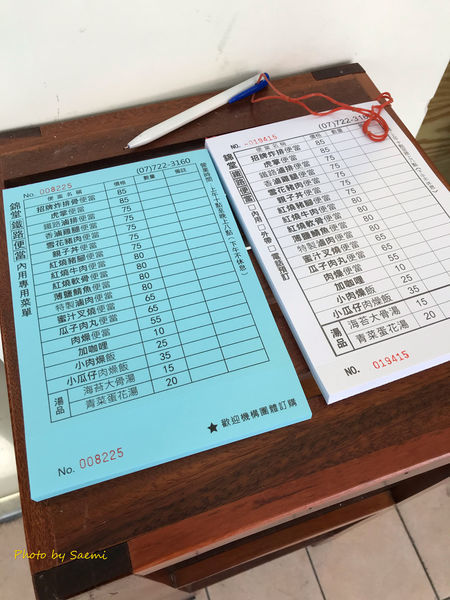 No. 008225
(07)722-3160
錦堂鐵路便當 內用專用菜單
便當名稱 價格 數量 備註
招牌炸排便當 85
虎掌便當 85
鐵路滷排便當 75
香滷雞腿便當 75
雪花豬肉便當 75
親子丼便當 75
紅燒豬腳便當 80
紅燒牛肉便當 80
紅燒軟骨便當 80
薄鹽鯖魚便當 80
特製滷肉便當 65
蜜汁叉燒便當 65
瓜子肉丸便當 55
肉燥便當
加咖哩 10
小肉燥飯 25
小瓜仔肉燥飯 35
湯品
海苔大骨湯 15
青菜蛋花湯 20
★歡迎機構團體訂購
No. 008225
NO. 019415
(07)722-3160
錦堂鐵路便當 □內用 □外帶 □電話預訂
便當名稱 價格 數量
招牌炸排便當 85
虎掌便當
鐵路滷排便當 75
香滷雞腿便當 75
雪花豬肉便當 75
親子丼便當 75
紅燒豬腳便當 80
紅燒牛肉便當 80
紅燒軟骨便當 80
薄鹽鯖魚便當 80
特製滷肉便當 65
蜜汁叉燒便當 65
瓜子肉丸便當 55
肉燥便當
加咖哩 10
小肉燥飯 25
小瓜仔肉燥飯 35
湯品
海苔大骨湯 15
青菜蛋花湯 20
NO. 019415
Photo by Saemi